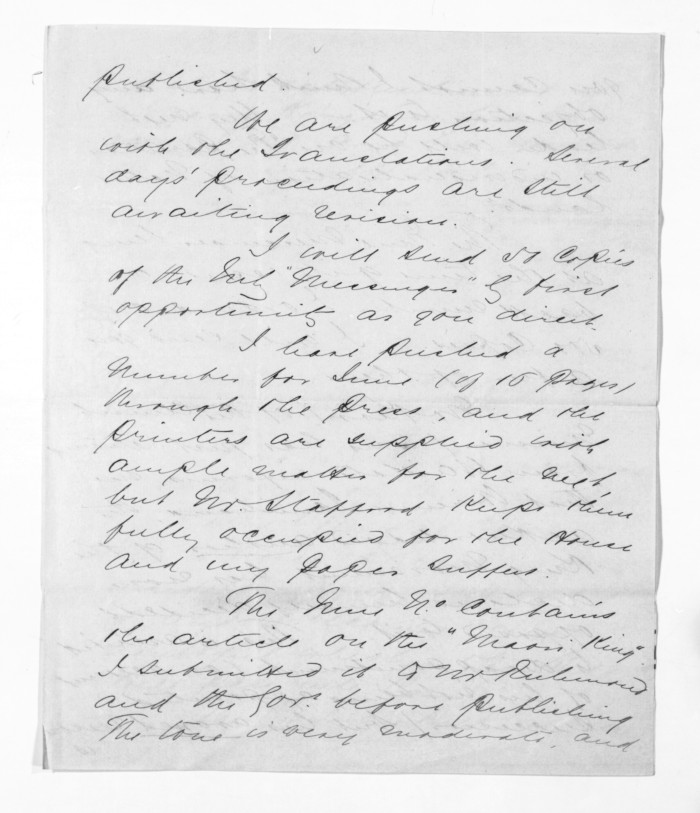 published.
We are pushing on
with the Translations. Several
days' proceedings are still
awaiting revision.
I will send 50 Copies
of the "Messenger" by first
opportunity as you direct.
I have pushed a
Number for June (of 16 pages)
through the press, and the
printers are supplied with
ample matter for the next,
but Mr. Stafford keeps them
fully occupied for the House
and my paper suffers.
The June No. contains
the article on the "Maori King".
I submitted it to Mr Richmond
and the Govr. before publishing
The tone is very moderate, and